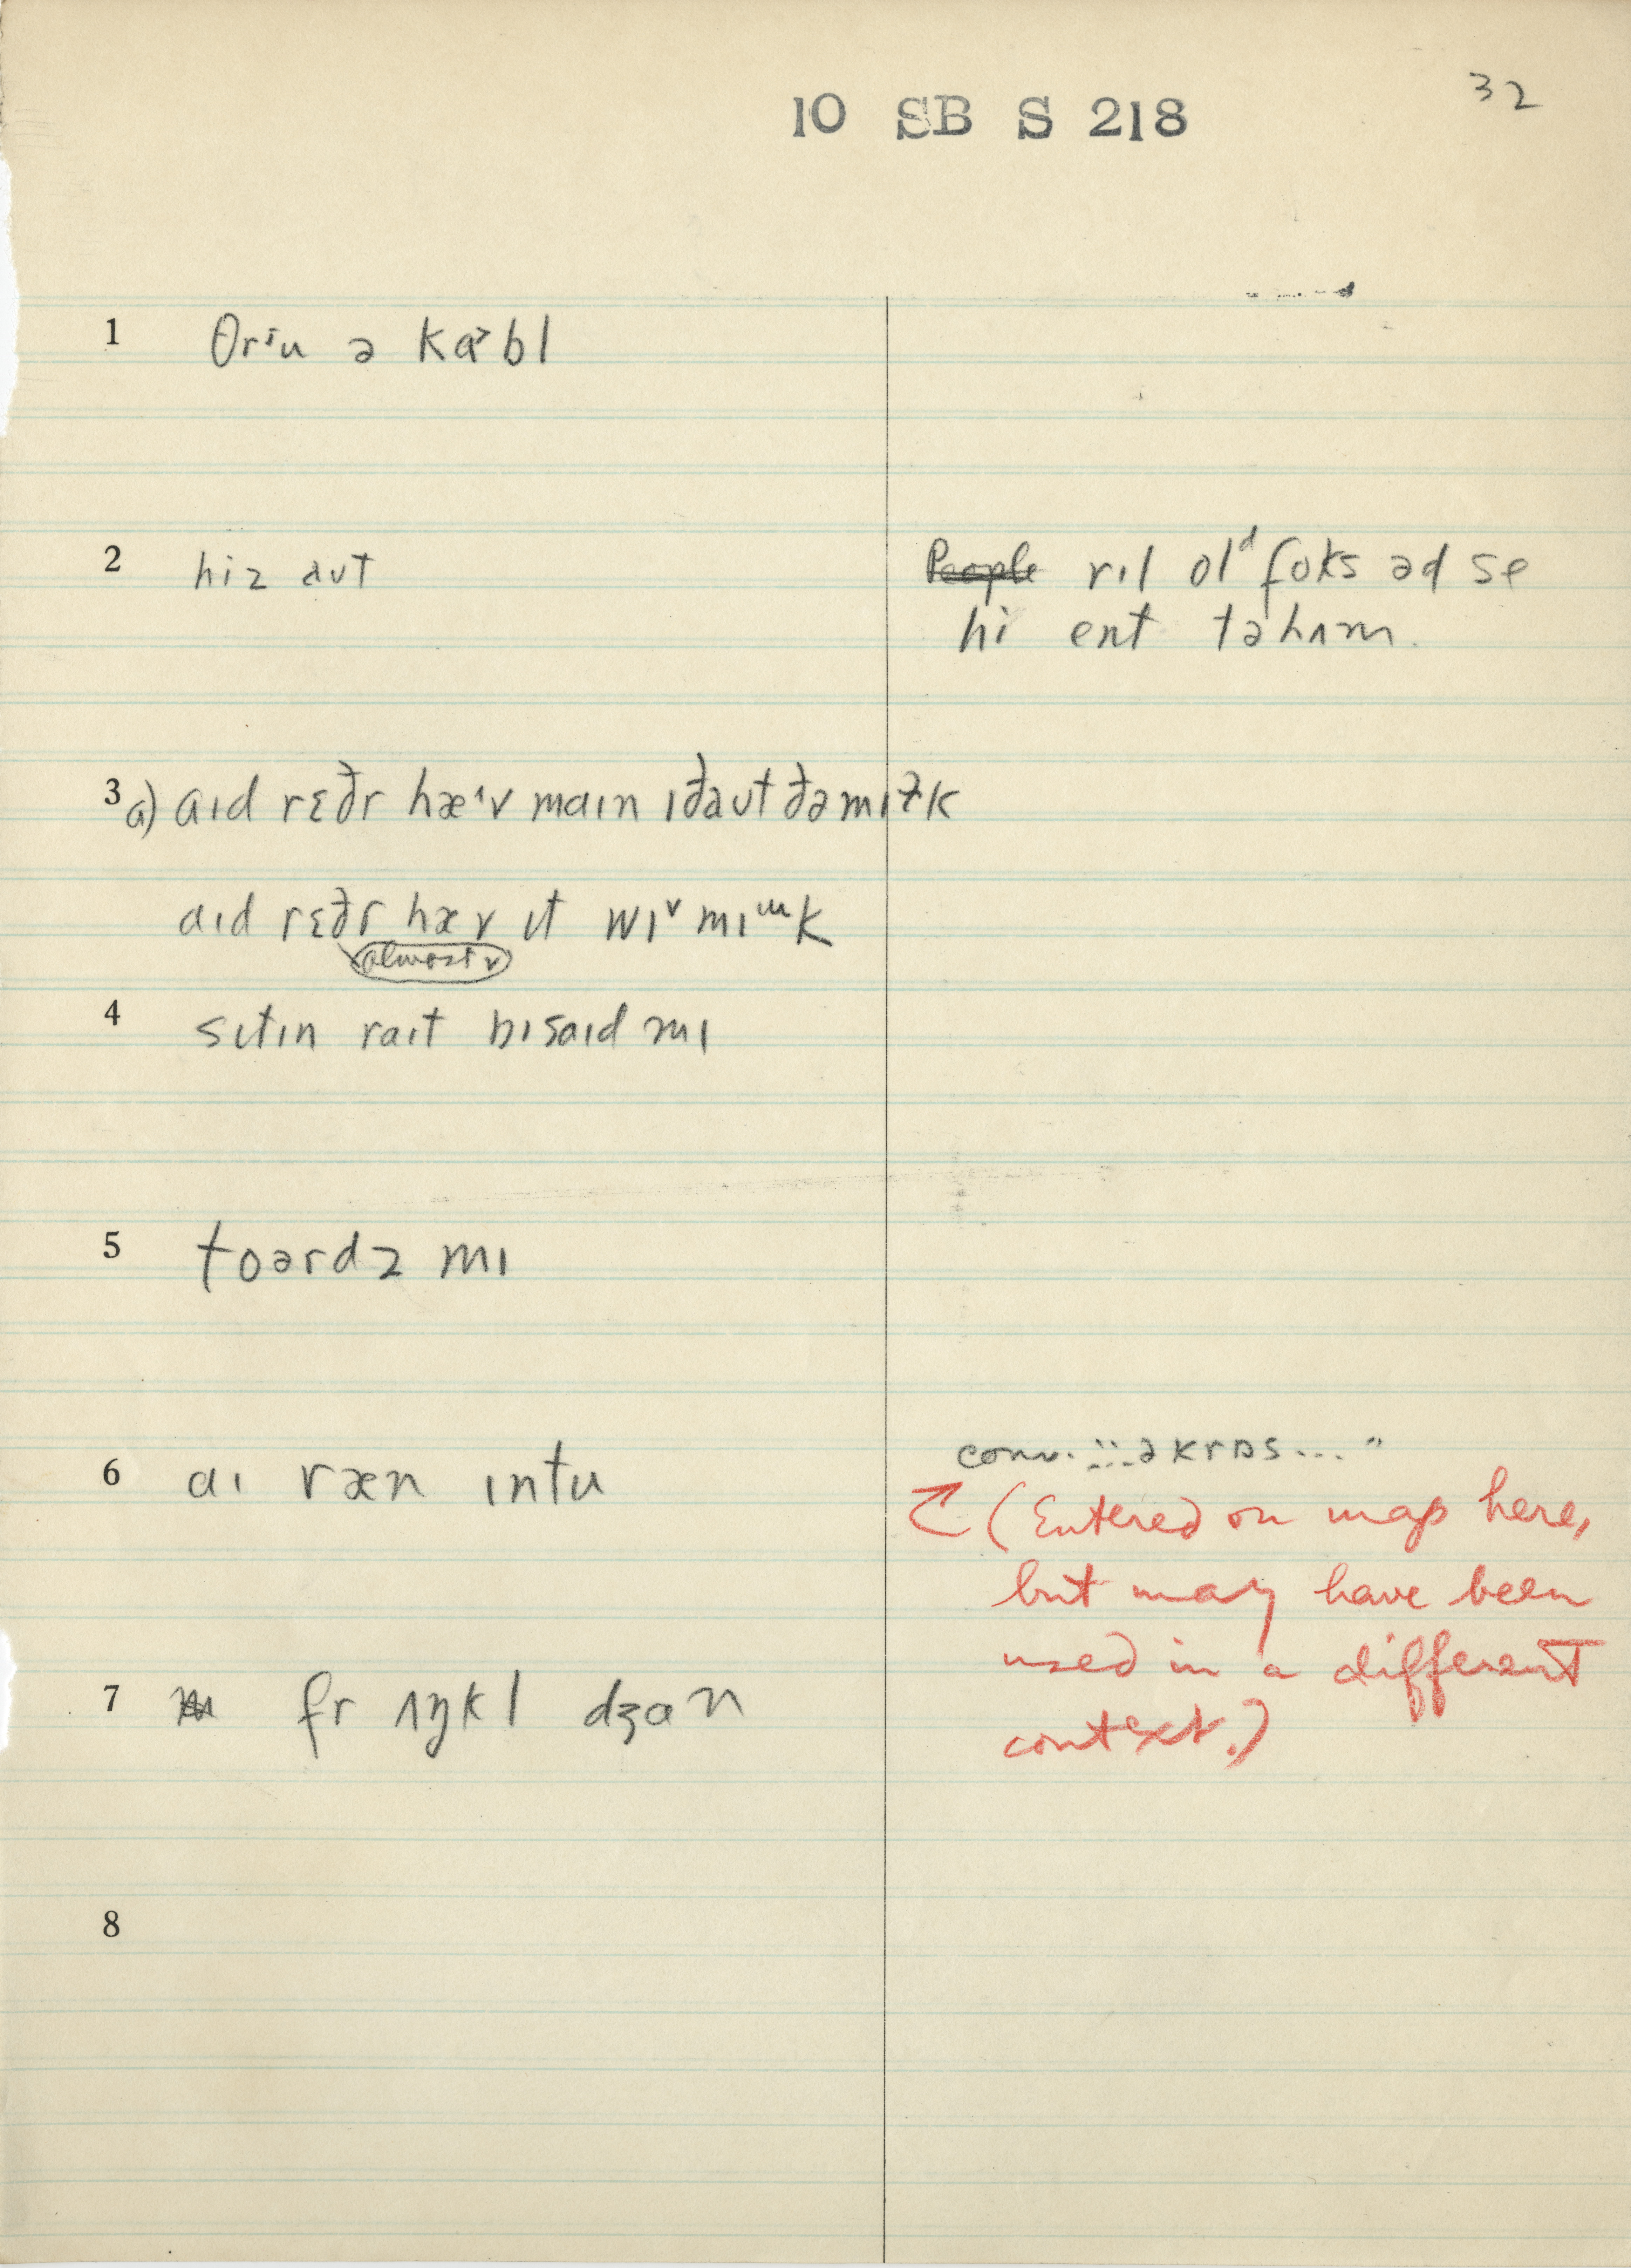 10 SB S 218
32
1 θrᶦu ə kɑ˃bl
2 hiz aʊt
P̶e̶o̶p̶l̶e̶ rɪl olᵈ foks əd se
hi ent tə hʌm.
3 a) aɪd rɛðr hæ˄v maɪn ɪðaʊt ðə mɪɫk
aɪd rɛðr hæv ɪt wɪ˅ mɪᵚk
almost v
4 sɪtɪn raɪt bɪsaɪd mɪ
5 toərdz mɪ
6 aɪ ræn ɪntu
conv. :::əkrɒs... "
(Entered on map here,
but may have been
used in a different
context.)
7 fr ʌŋkl dʒɑn
8